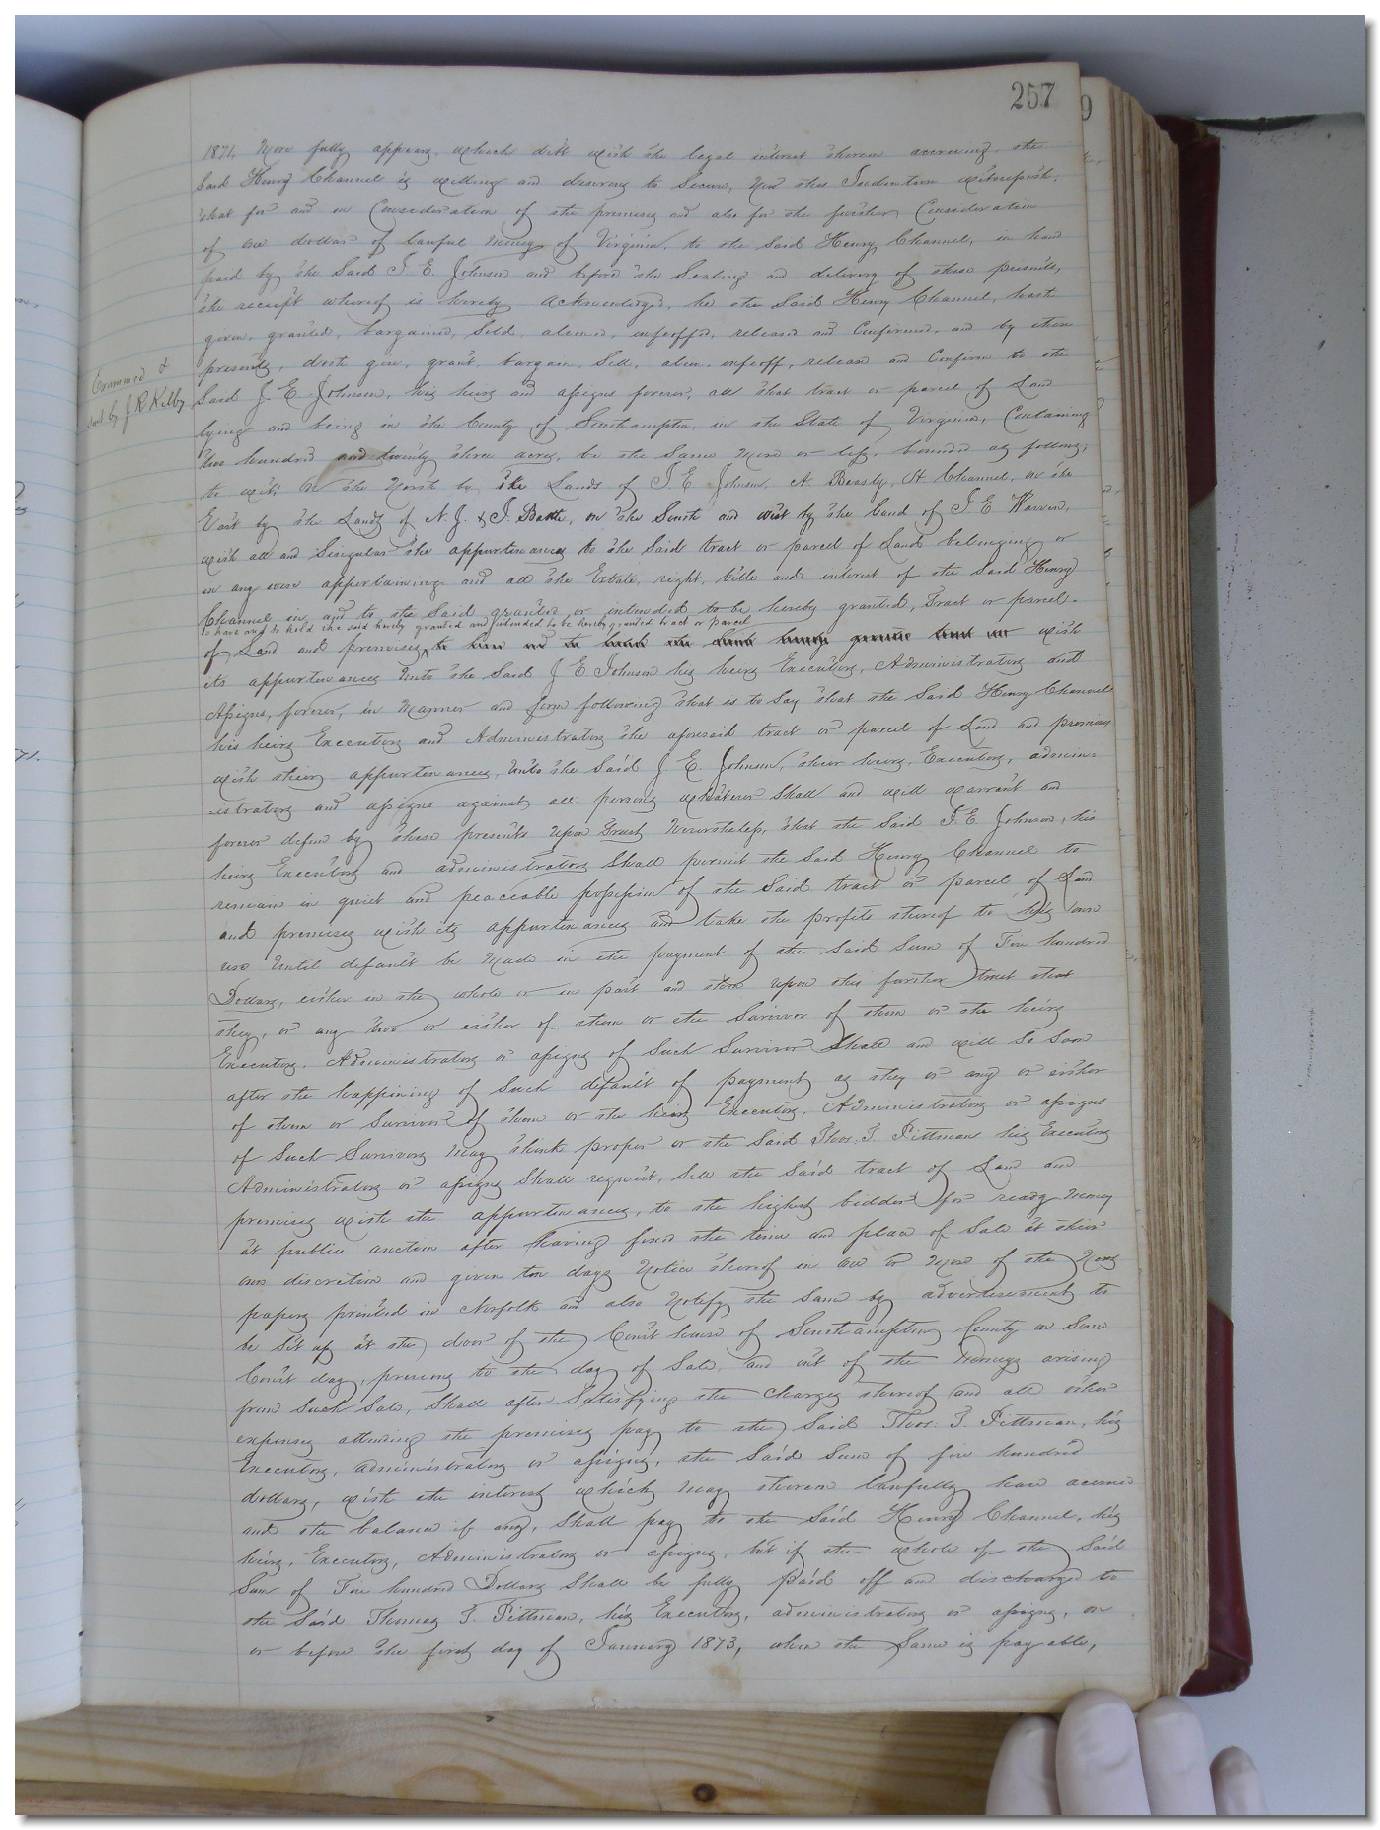 257
9
1871, More fully appears, which debt with the legal interest thereon accruing the
Said Henry Channel is willing and desirous to Secure, Now this Indenture witnesseth,
that for and in Consideration of the premises and also for the further Consideration
of one dollar of lawful money of Virginia, to the Said Henry Channel, in hand
paid by the Said J. E. Johnson and before the Sealing and delivery of these presents,
the receipt whereof is hereby acknowledged, he the Said Henry Channel, hath
given, granted, bargained, Sold, aliened, enfeoffed, released and Confirmed, and by these
presents, doth give, grant, bargain, Sell, alien, enfeoff, release and Confirm to the
Examined &
sent by J R Kilby
Said J. E Johnson, his heirs and assigns forever, all that tract or parcel of Land
lying and being in the County of Southampton, in the State of Virginia, Containing
two hundred and twenty three acres, be the Same more or less, bounded as follows,
to wit; On the North by the Lands of J. E Johnson, A. Beasly, H Channel, on the
East by the Lands of N. J. & J. Battle, on the South and west by the land of J E Warren,
with all and Singular the appurtenances to the Said tract or parcel of Land belonging or
in any wise appertaining and all the Estate, right, title and interest of the Said Henry
Channel in and to the Said granted, or intended to be hereby granted, Tract or parcel
to have and to hold the said hereby granted and intended to be hereby granted tract or parcel
of Land and premises to have and to hold the said hereby with
its appurtenances Unto the Said J E Johnson his heirs Executors, Administrators and
Assigns, forever, in Manner and form following that is to Say that the Said Henry Channel
his heirs Executors and Administrators the aforesaid tract or parcel of Land and premises
with their appurtenances, Unto the Said J. E. Johnson, their heirs, Executors, admin=
=istrators and assigns against all persons whatever Shall and will warrant and
forever defend by these presents Upon Trust Nevertheless, that the Said J. E. Johnson, his
heirs Executors and administrators Shall permit the Said Henry Channel to
remain in quiet and peaceable possession of the Said tract or parcel of Land
and premises with its appurtenances and take the profits thereof to his own
use Until default be Made in the payment of the Said Sum of Five hundred
Dollars, either in the whole or in part and then upon this further trust that
they, or any two or either of them or the Survivor of them or the heirs
Executors, Administrators or assigns of Such Survivor Shall and will So Soon
after the happening of Such default of payment as they or any or either
of them or Survivor of them or the heirs Executors, Administrators or assigns
of Such Survivors may think proper or the Said Thos. J. Pittman his Executors
Administrators or assigns Shall request, Sell the Said tract of Land and
premises with the appurtenances, to the highest bidder for ready Money
at public auction after having fixed the time and place of Sale at their
own discretion and given ten days Notice thereof in one or More of the News
papers printed in Norfolk and also Notify the Same by advertisement to
be Set up at the door of the Court house of Southampton County on Some
Court day, previous to the day of Sale, and out of the Moneys arising
from Such Sale, Shall after Satisfying the charges thereof and all other
expenses attending the premises pay to the Said Thos. J. Pittman, his
Executors, administrators or assigns, the Said Sum of five hundred
dollars, with the interest which may thereon lawfully have accrued
and the balance if any, Shall pay to the Said Henry Channel, his
heirs, Executors, Administrators or assigns, but if the whole of the Said
Sum of Five hundred Dollars Shall be fully paid off and discharged to
the Said Thomas J. Pittman, his Executors, administrators or assigns, on
or before the first day of January 1873, when the Same is payable,